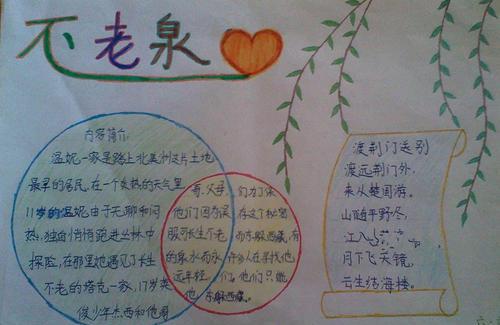 不老泉
内容简介:
温妮一家是踏上北美洲这片土地
最早的居民,在一个炎热的天气里
11岁的温妮由于无聊和闷
热,独自悄悄跑进丛林中
探险,在那里她遇见了长生
不老的塔克一家,17岁英
俊少年杰西和他哥
哥、父母 们为了保
他们因为误 存这个秘密
服了长生不老 而东躲西藏,有
的泉水而永 许多人在寻找他
远年轻, 们。他们只能
他 东躲西藏。
渡荆门送别
渡远荆门外,
来从楚国游。
山随平野尽,
江入
月下飞天镜,
云生结海楼。